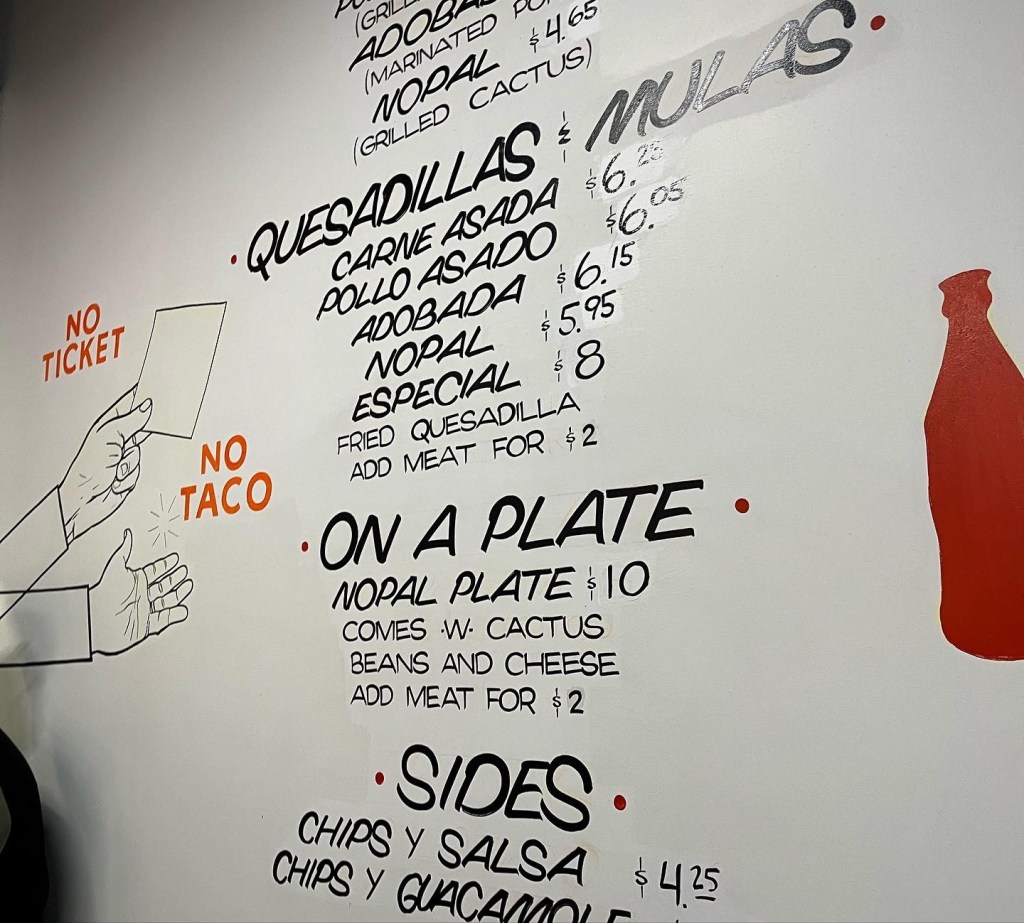 (GRILL
ADOBA
(MARINATED PO
NOPAL $4.65
(GRILLED CACTUS)
• QUESADILLAS & MULAS •
CARNE ASADA $6.25
POLLO ASADO $6.05
ADOBADA $6.15
NOPAL $5.95
ESPECIAL $8
FRIED QUESADILLA
ADD MEAT FOR $2
NO
TICKET
NO
TACO
• ON A PLATE •
NOPAL PLATE $10
COMES ·W· CACTUS
BEANS AND CHEESE
ADD MEAT FOR $2
• SIDES •
CHIPS Y SALSA $4.25
CHIPS Y GUACAMOLE